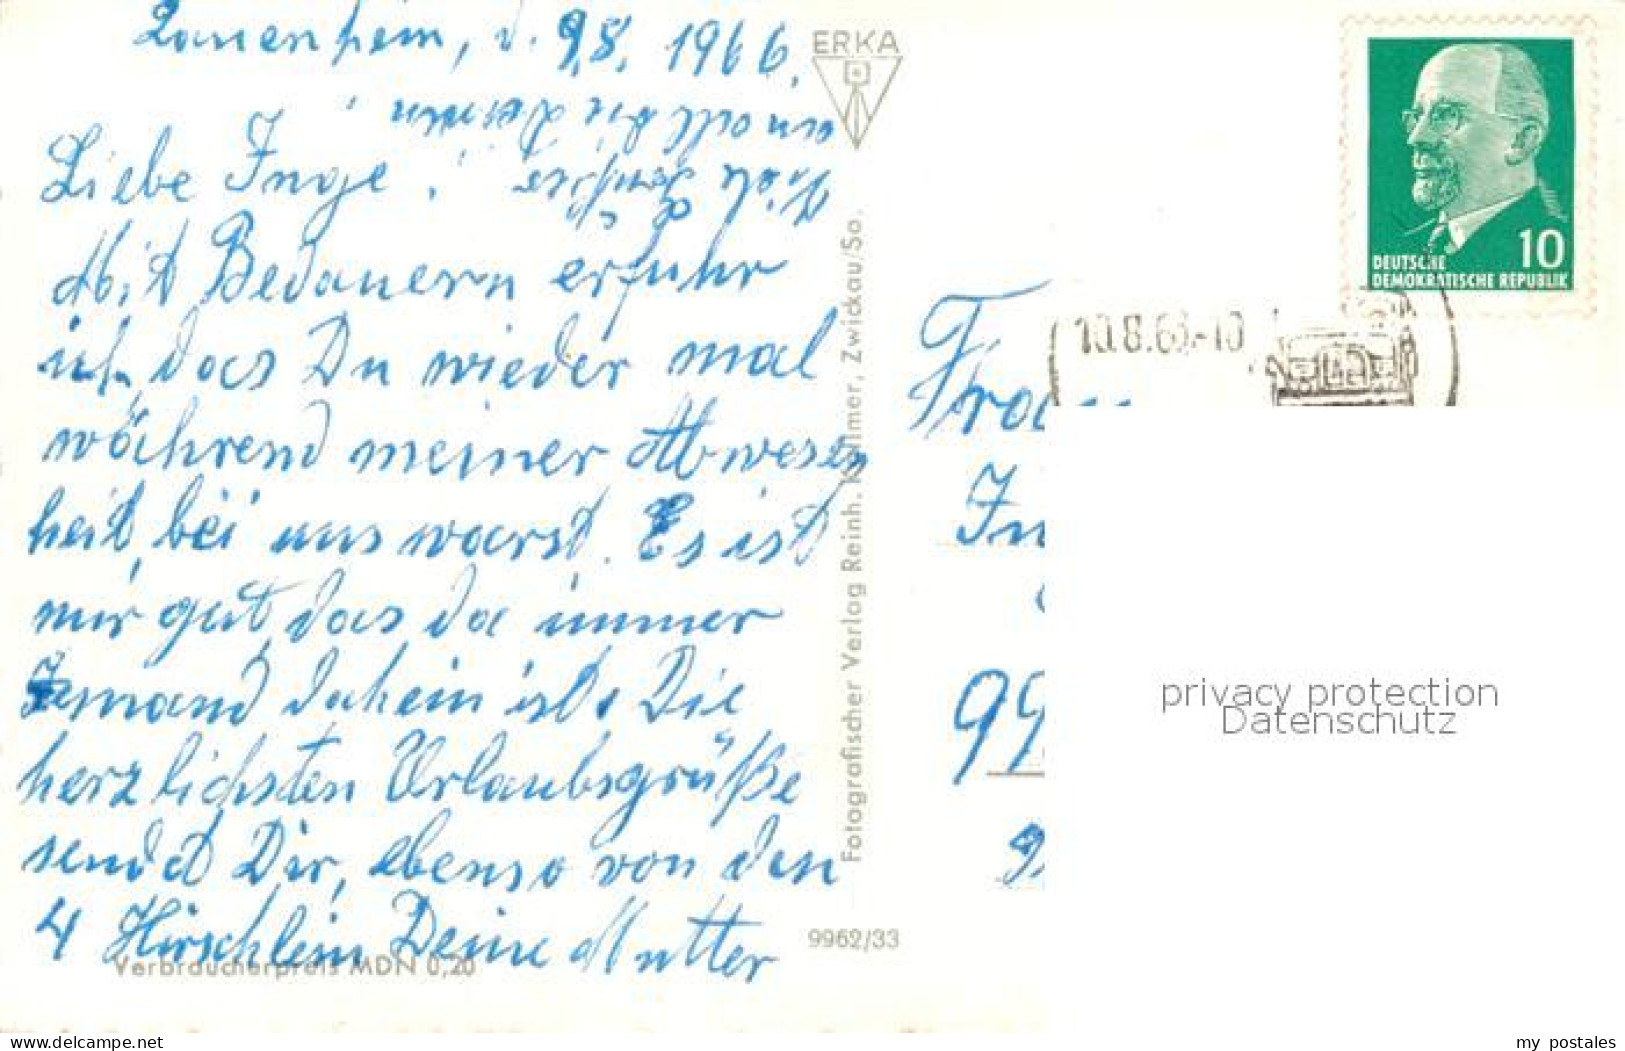 Lauenhein, d. 9.8. 1966.
Liebe Inge!
Mit Bedauern erfuhr
ich, das Du wieder mal
während meiner Abwesen
heit, bei uns warst. Es ist
mir gut, das da immer
Jemand daheim ist. Die
herzlichsten Urlaubsgrüße
sendet Dir, ebenso von den
4 Hirschlein Deine Mutter
Verbraucherpreis MDN 0,20
9962/33
ERKA
Fotografischer Verlag Reinh. Kallmer, Zwickau/Sa.
10
DEUTSCHE
DEMOKRATISCHE REPUBLIK
10.8.66-10
Frau
In
99
privacy protection
Datenschutz
www.delcampe.net
my_postales